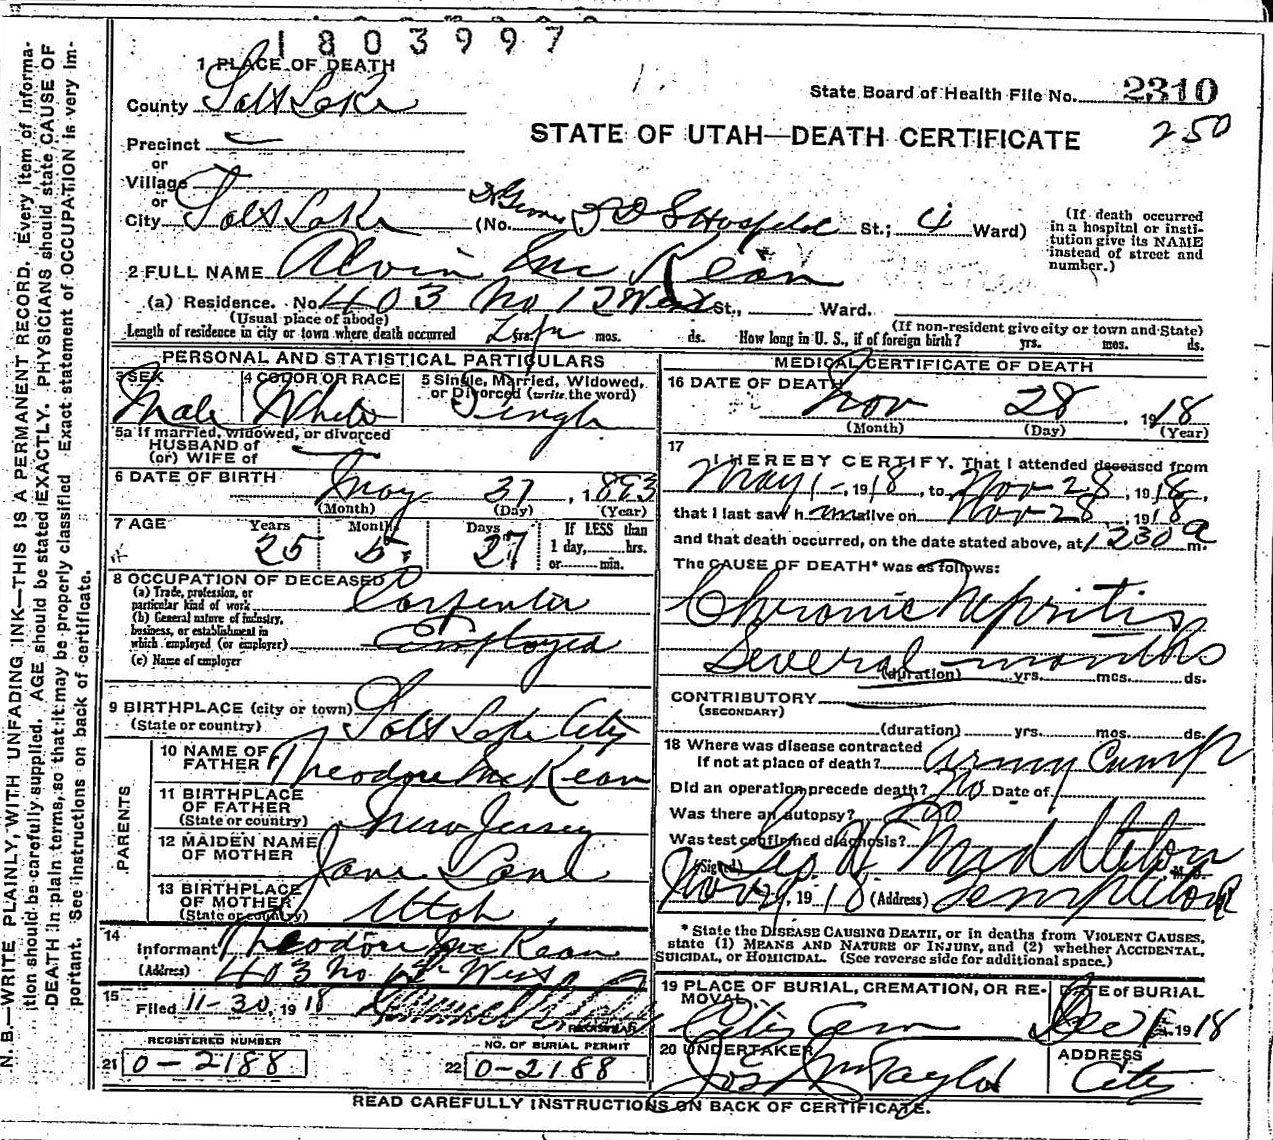 1803997
1 PLACE OF DEATH
County Salt Lake
State Board of Health File No. 2310
250
STATE OF UTAH—DEATH CERTIFICATE
Precinct
or
Village
or
City Salt Lake (No. L D S Hospital St.; 4 Ward)
(If death occurred in a hospital or insti-
tution give its NAME
instead of street and
number.)
2 FULL NAME Alvin Mc Kean
(a) Residence. No. 403 No 12 West St., Ward.
(Usual place of abode) (If non-resident give city or town and State)
Length of residence in city or town where death occurred Life yrs. mos. ds. How long in U. S., if of foreign birth? yrs. mos. ds.
PERSONAL AND STATISTICAL PARTICULARS
3 SEX Male
4 COLOR OR RACE White
5 Single, Married, Widowed,
or Divorced (write the word)
Single
5a If married, widowed, or divorced
HUSBAND of
(or) WIFE of
6 DATE OF BIRTH May 31, 1893
(Month) (Day) (Year)
7 AGE Years Months Days If LESS than
25 5 27 1 day, hrs.
or min.
8 OCCUPATION OF DECEASED
(a) Trade, profession, or
particular kind of work Carpenter
(b) General nature of industry,
business, or establishment in
which employed (or employer) Employed
(c) Name of employer
9 BIRTHPLACE (city or town) Salt Lake City
(State or country)
PARENTS
10 NAME OF
FATHER Theodore McKean
11 BIRTHPLACE
OF FATHER
(State or country) New Jersey
12 MAIDEN NAME
OF MOTHER Jane
13 BIRTHPLACE
OF MOTHER
(State or country) Utah
14
Informant Theodore McKean
(Address) 403 No 12 West
15
Filed 11-30, 1918
REGISTRAR
REGISTERED NUMBER
21 0-2188
NO. OF BURIAL PERMIT
22 0-2188
MEDICAL CERTIFICATE OF DEATH
16 DATE OF DEATH
Nov 28, 1918
(Month) (Day) (Year)
17
I HEREBY CERTIFY, That I attended deceased from
May 1-, 1918, to Nov 28, 1918,
that I last saw him alive on Nov 28, 1918
and that death occurred, on the date stated above, at 1230 a m.
The CAUSE OF DEATH* was as follows:
Chronic Nepritis
Several months
(duration) yrs. mos. ds.
CONTRIBUTORY
(SECONDARY)
(duration) yrs. mos. ds.
18 Where was disease contracted
If not at place of death? Army Camp
Did an operation precede death? No Date of
Was there an autopsy? No
Was test confirmed diagnosis?
(Signed) Geo W Middleton M. D.
Nov 29, 1918 (Address) Templeton
* State the DISEASE CAUSING DEATH, or in deaths from VIOLENT CAUSES,
state (1) MEANS AND NATURE OF INJURY, and (2) whether ACCIDENTAL,
SUICIDAL, or HOMICIDAL. (See reverse side for additional space.)
19 PLACE OF BURIAL, CREMATION, OR RE-
MOVAL
City Cem
DATE of BURIAL
Dec 1, 1918
20 UNDERTAKER
Jos Wm Taylor
ADDRESS
City
READ CAREFULLY INSTRUCTIONS ON BACK OF CERTIFICATE.
N. B.—WRITE PLAINLY, WITH UNFADING INK—THIS IS A PERMANENT RECORD. Every item of informa-
tion should be carefully supplied. AGE should be stated EXACTLY. PHYSICIANS should state CAUSE OF
DEATH in plain terms, so that it may be properly classified Exact statement of OCCUPATION is very im-
portant. See instructions on back of certificate.